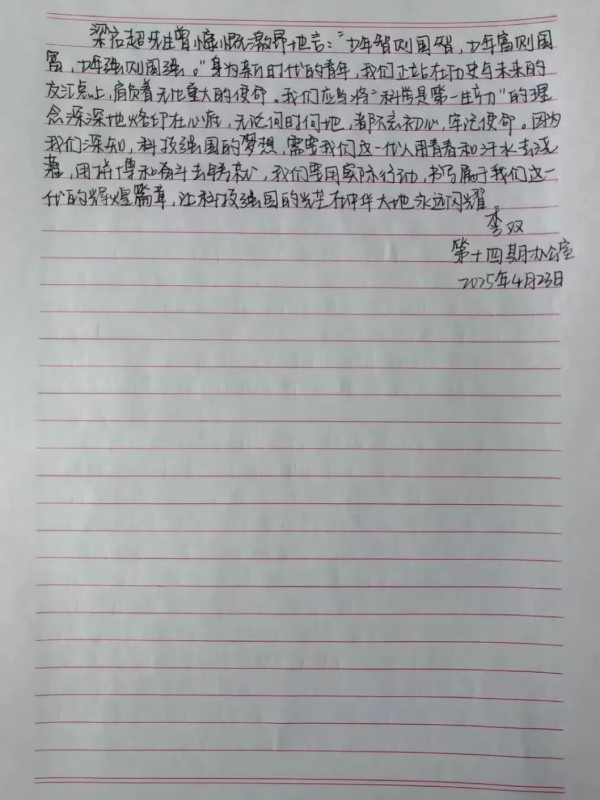 梁启超先生曾慷慨激昂地言：“少年智则国智，少年富则国
富，少年强则国强。”身为新时代的青年，我们正站在历史与未来的
交汇点上，肩负着无比重大的使命。我们应当将“科学是第一生产力”的理
念深深地烙印在心底，无论何时何地，都不忘初心，牢记使命。因为
我们深知，科技强国的梦想，需要我们这一代人用青春和汗水去浇
灌，用拼搏和奋斗去铸就，我们要用实际行动，书写属于我们这一
代的辉煌篇章，让科技强国的光芒在中华大地永远闪耀。
李双
第十四期办公室
2025年4月23日